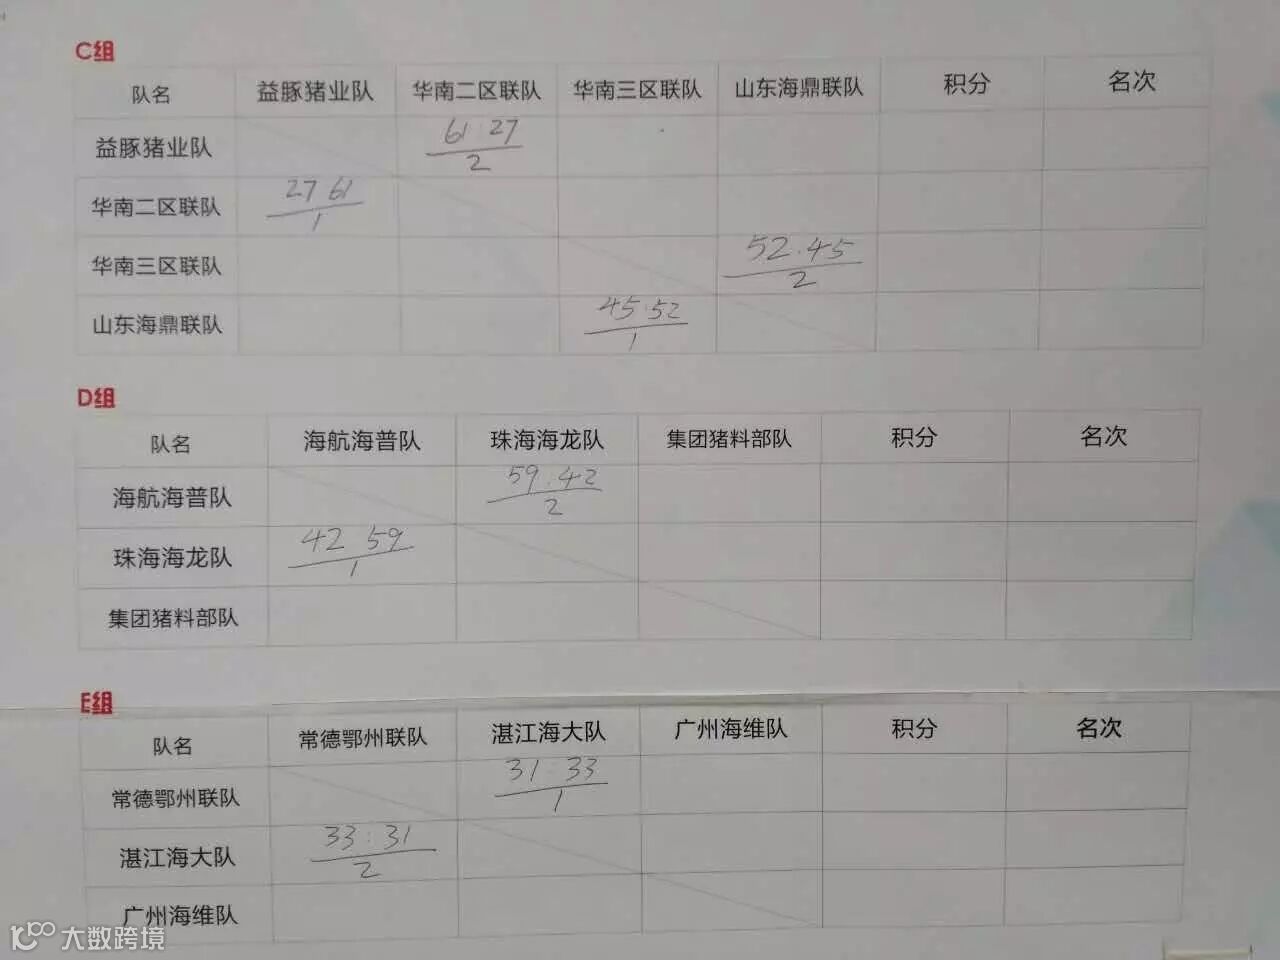 C组
队名 益豚猪业队 华南二区联队 华南三区联队 山东海鼎联队 积分 名次
益豚猪业队 61:27
2
华南二区联队 27 61
1
华南三区联队 52.45
2
山东海鼎联队 45:52
1
D组
队名 海航海普队 珠海海龙队 集团猪料部队 积分 名次
海航海普队 59.42
2
珠海海龙队 42 59
1
集团猪料部队
E组
队名 常德鄂州联队 湛江海大队 广州海维队 积分 名次
常德鄂州联队 31:33
1
湛江海大队 33:31
2
广州海维队
大数跨境